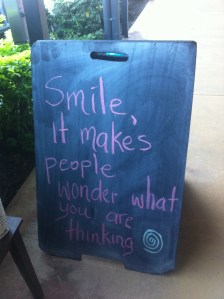 Smile,
it makes
people
wonder what
you are
thinking